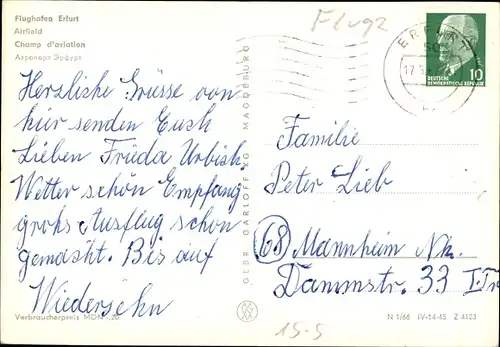 Flughafen Erfurt
Airfield
Champ d'aviation
Аэропорт Эрфурт
Herzliche Grüsse von
hier senden Euch
Lieben Frieda Urbisk.
Wetter schön Empfang
groß Ausflug schon
gemacht. Bis auf
Wiedersehn
Verbraucherpreis MDN -.20
GEBR. GARLOFF KG MAGDEBURG
Flugz
ERFURT
50
17.
DEUTSCHE
DEMOKRATISCHE REPUBLIK
10
Familie
Peter Lieb
68 Mannheim Nk.
Dammstr. 33 I.Tr
N 1/66 IV-14-45 Z 4123
15.5